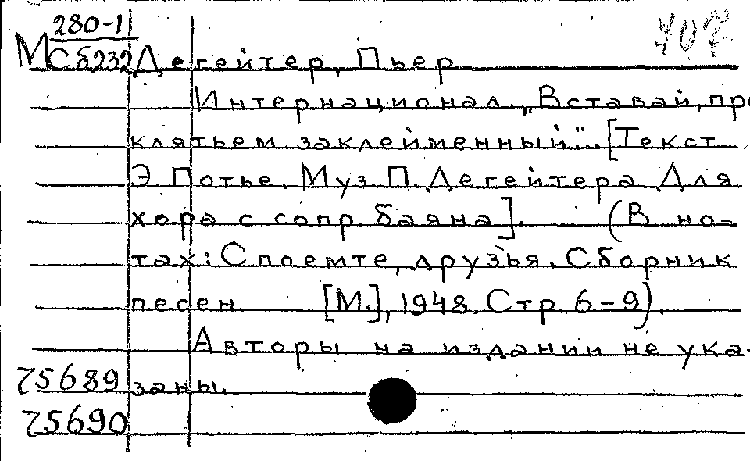 280-11
МСб232 Дегейтер, Пьер
Интернационал „Вставай, про
клятьем заклейменный". [Текст
Э Потье. Муз П. Дегейтера Для
хора с сопр. баяна]. (В но-
тах: Споемте, друзья. Сборник
песен [М.], 1948. Стр 6-9).
Авторы на издании не ука-
75689 заны.
75690